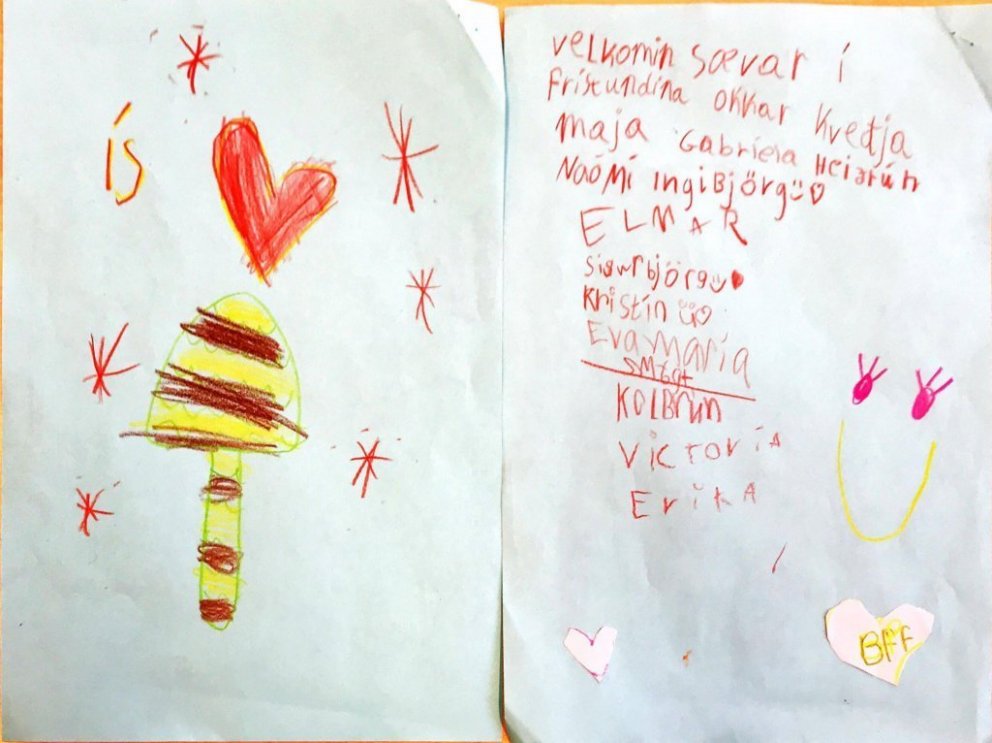 ís
velkomin sævar í
fristundina okkar kveðja
maja Gabriela Heiðrún
Naómí IngiBjörg
ELMAR
sigurbjörg
kristín
Evamaría
KOLBrún
VictoriA
ErikA
BFF